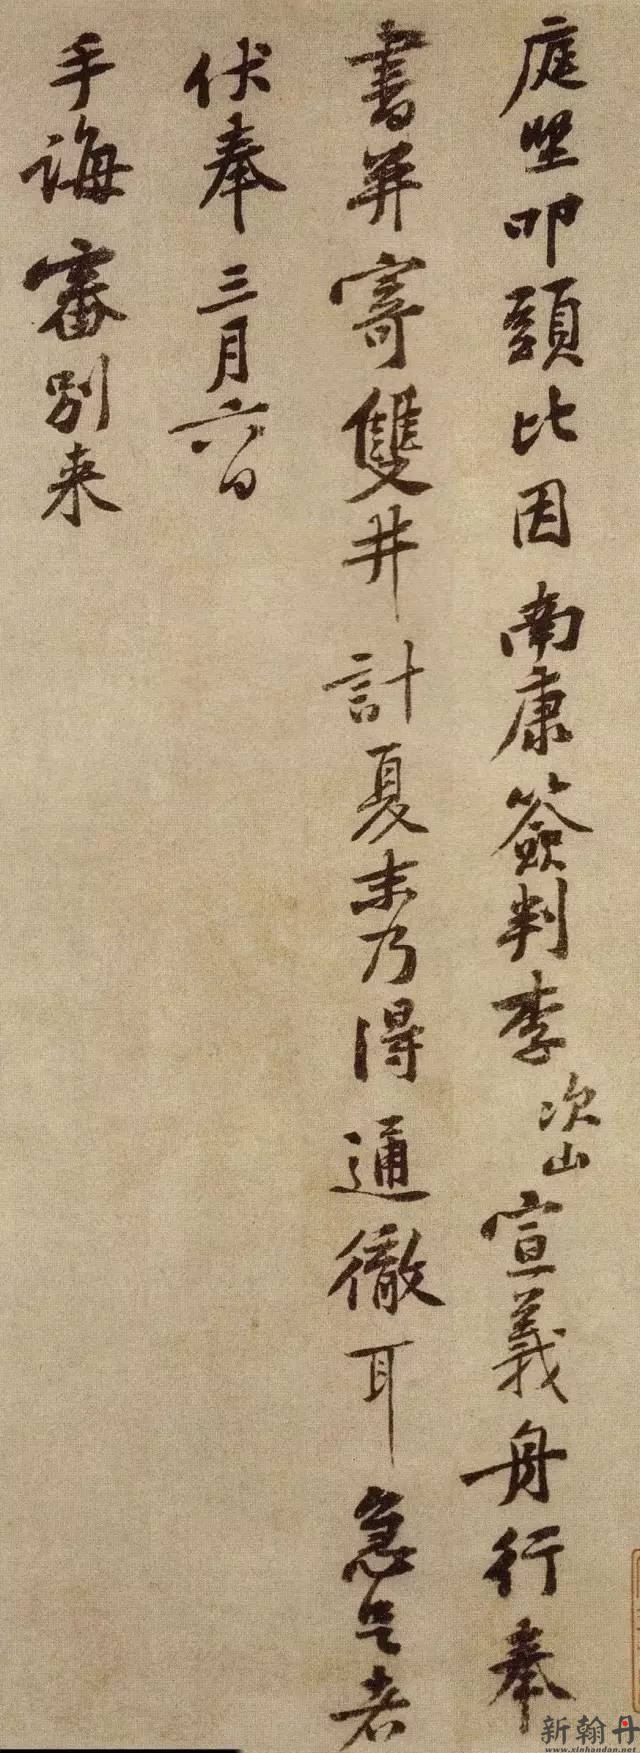 庭堅叩頭比因南康簽判李次山宣義舟行奉
書并寄雙井計夏末乃得通徹耳急足者
伏奉三月六日
手誨審別来
新翰丹
www.xinhandan.net